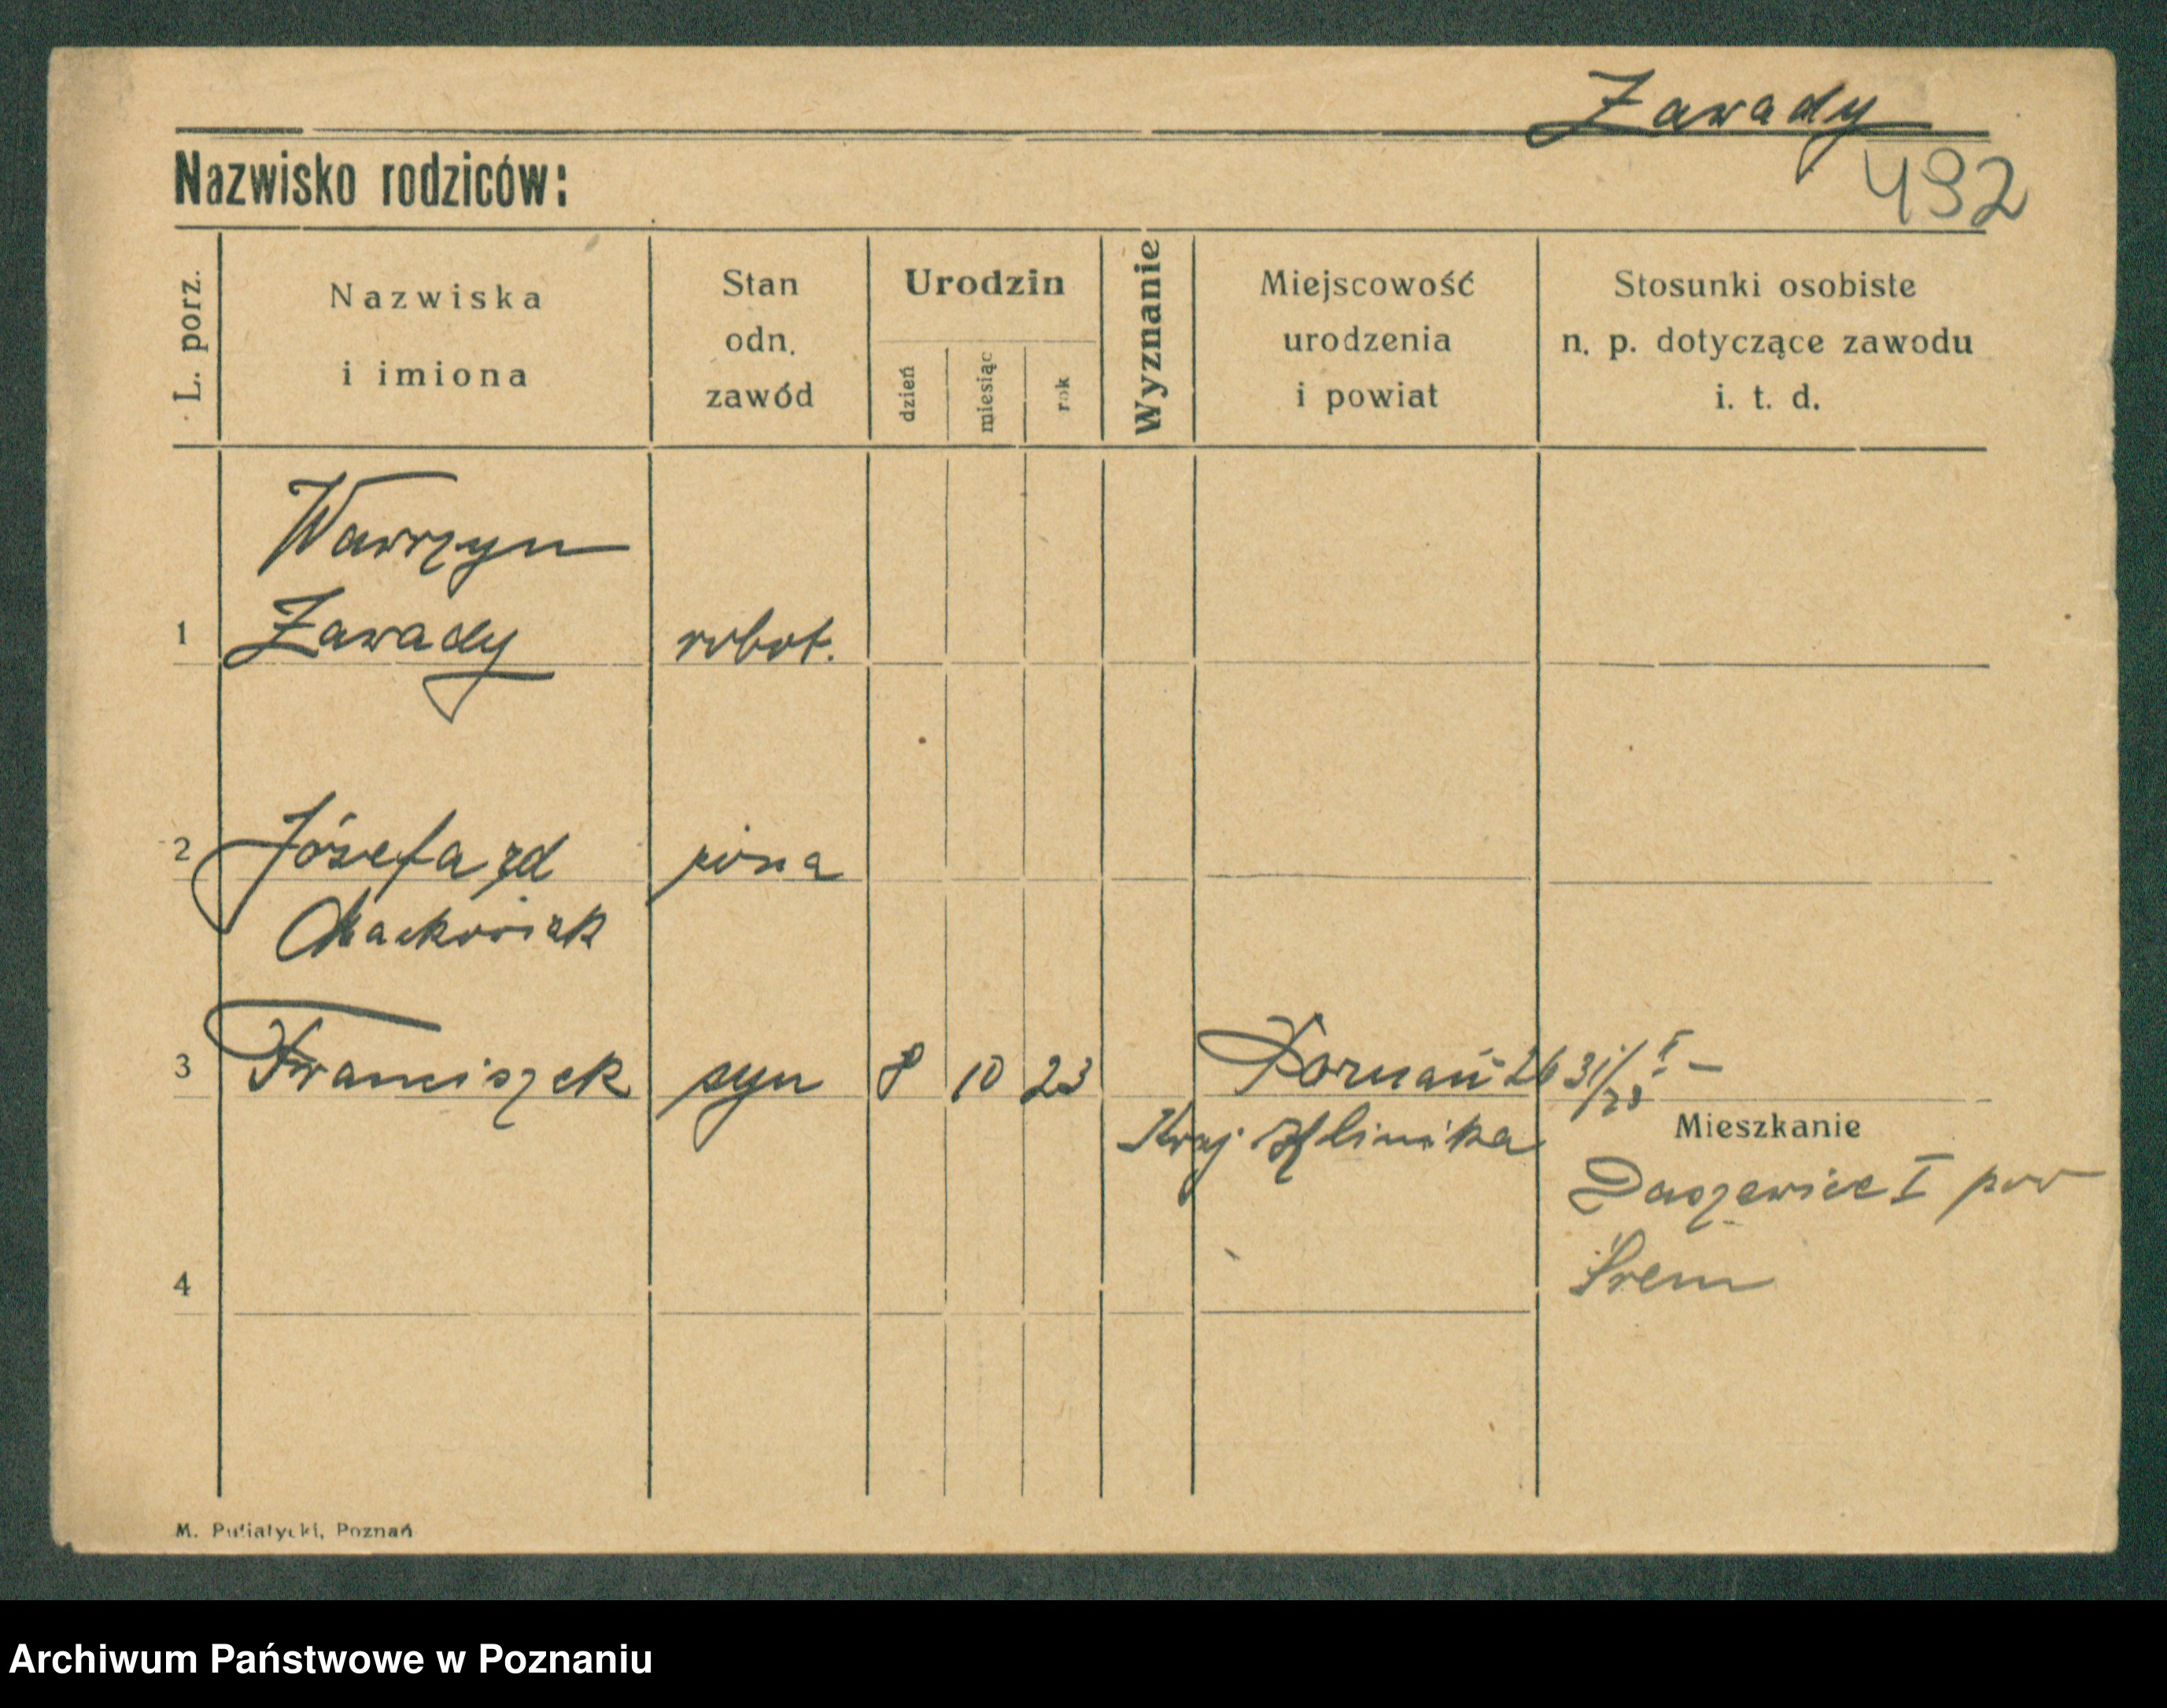 Zawady
492
Nazwisko rodziców:
L. porz.
Nazwiska
i imiona
Stan
odn.
zawód
Urodzin
dzień
miesiąc
rok
Wyznanie
Miejscowość
urodzenia
i powiat
Stosunki osobiste
n. p. dotyczące zawodu
i. t. d.
Wawrzyn
1 Zawady robot.
2 Józefa zd żona
Maćkowiak
3 Franciszek syn 8 10 23 Poznań 26 31/I 23 –
Kraj Klinika
Mieszkanie
Daszewice I pow
Śrem
4
M. Putiatycki, Poznań
Archiwum Państwowe w Poznaniu